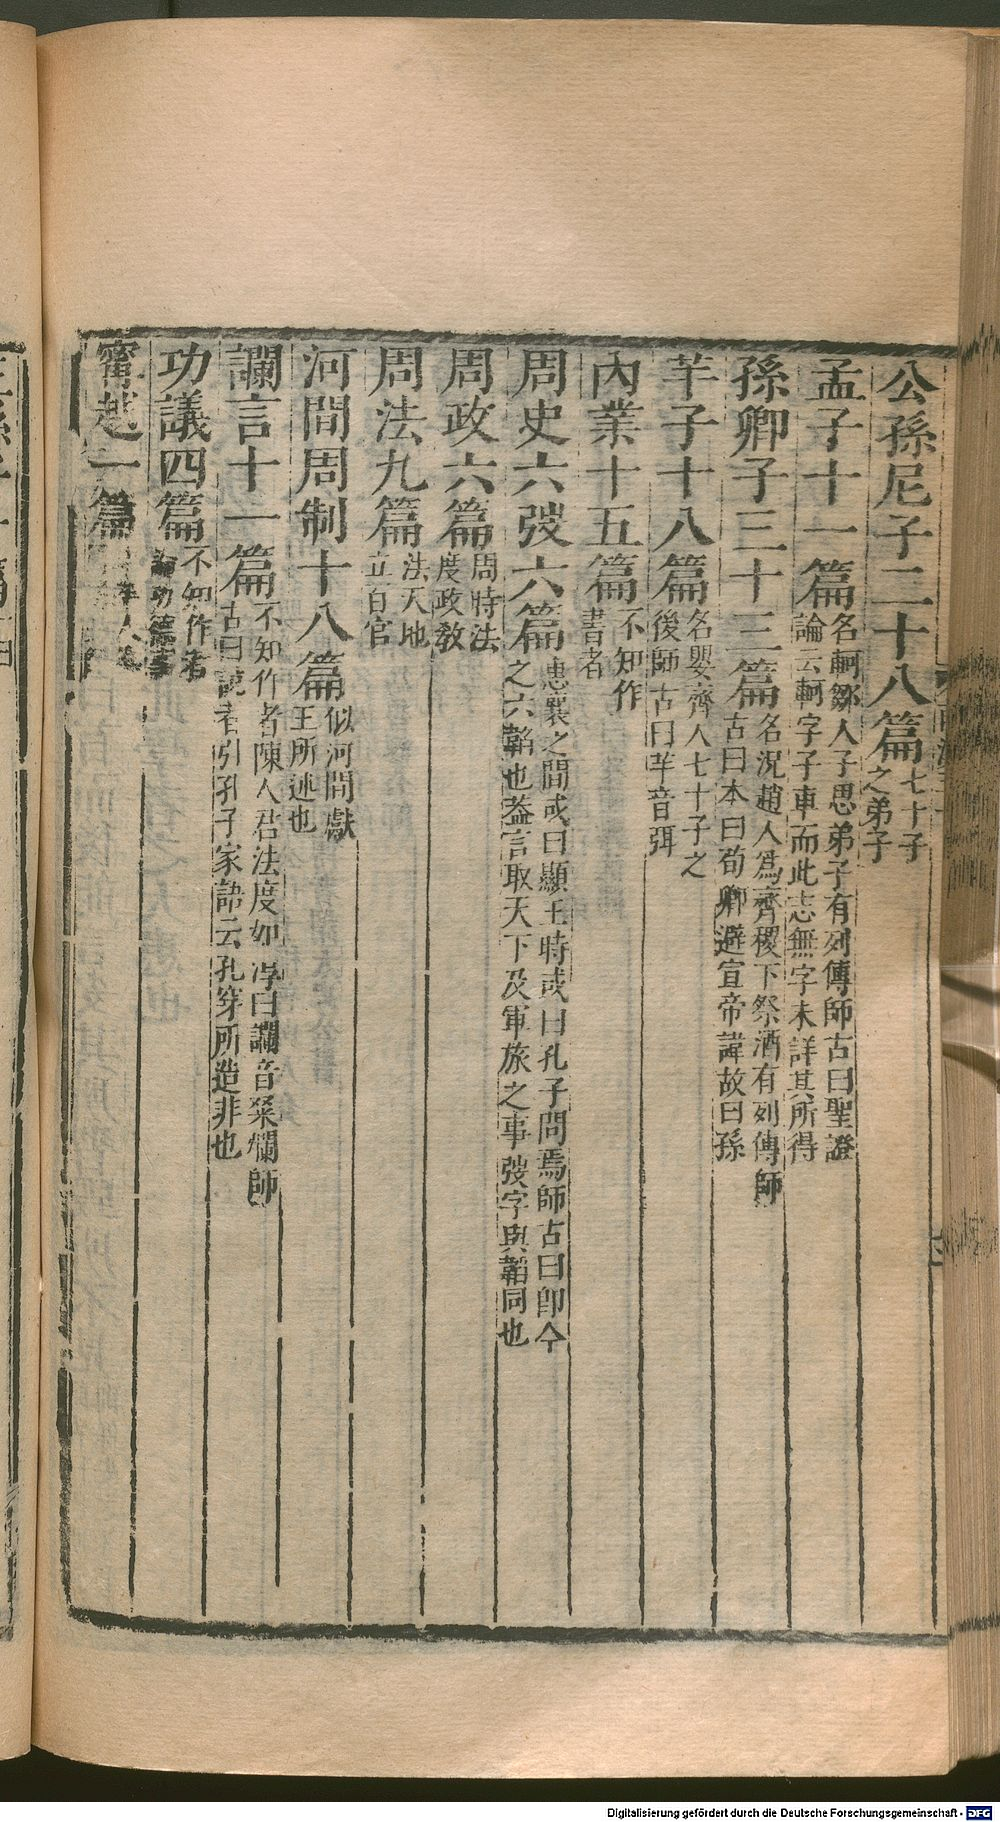 公孫尼子二十八篇七十子之弟子
孟子十一篇名軻鄒人子思弟子有列傳師古曰聖證論云軻字子車而此志無字未詳其所得
孫卿子三十三篇名況趙人爲齊稷下祭酒有列傳師古曰本曰荀卿避宣帝諱故曰孫
芉子十八篇名嬰齊人七十子之後師古曰芉音弭
內業十五篇不知作書者
周史六弢六篇惠襄之間或曰顯王時或曰孔子問焉師古曰卽今之六韜也蓋言取天下及軍旅之事弢字與韜同也
周政六篇周時法度政敎
周法九篇法天地立百官
河間周制十八篇似河間獻王所述也
讕言十一篇不知作者陳人君法度如淳曰讕音粲爛師古曰說者引孔子家語云孔穿所造非也
功議四篇不知作者論功德事
甯越一篇
Digitalisierung gefördert durch die Deutsche Forschungsgemeinschaft - DFG